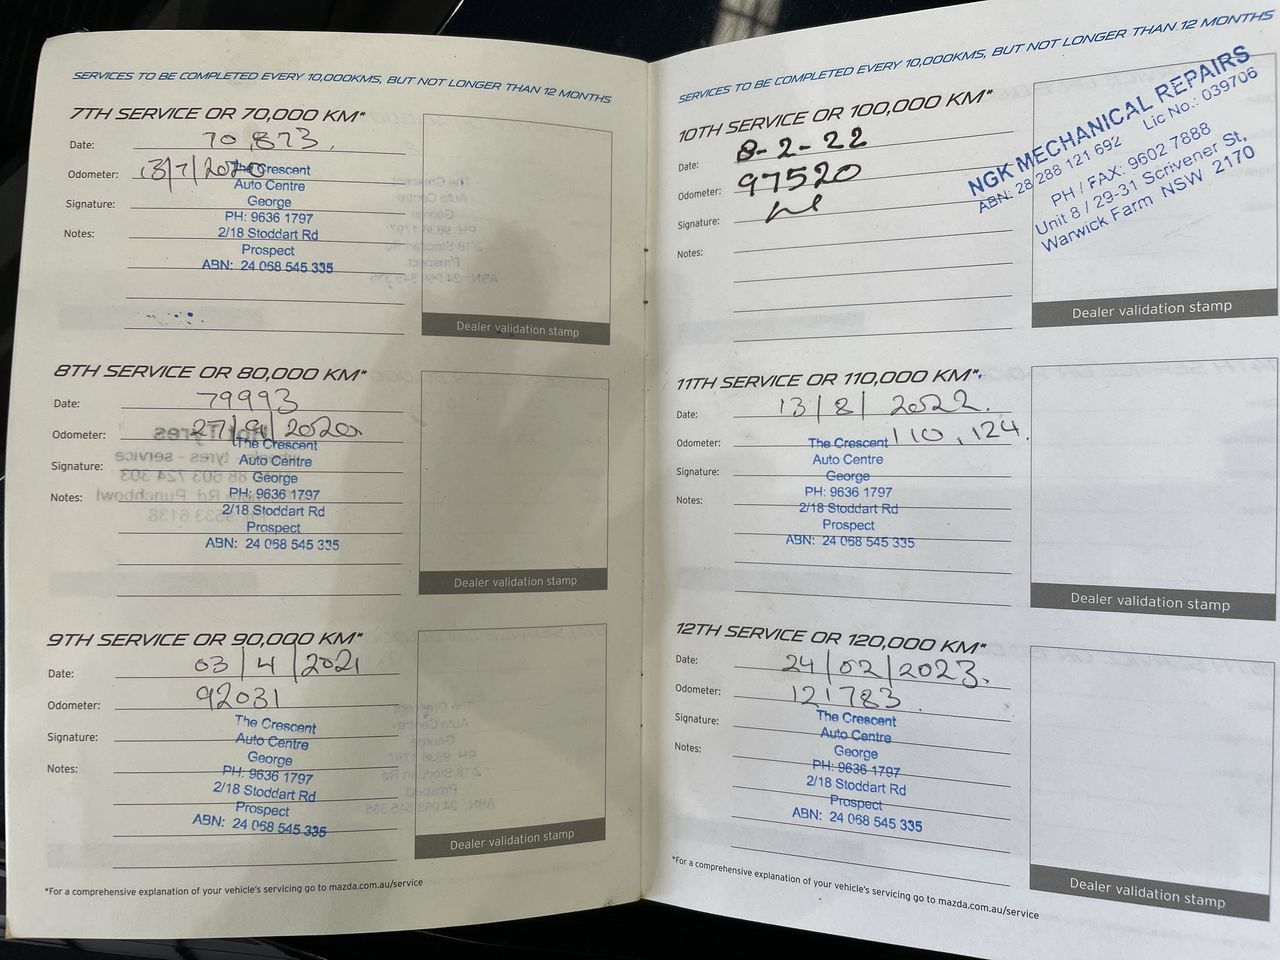 SERVICES TO BE COMPLETED EVERY 10,000KMS, BUT NOT LONGER THAN 12 MONTHS
7TH SERVICE OR 70,000 KM*
Date: 70,873.
Odometer: 13/7/2020
The Crescent
Auto Centre
Signature: George
PH: 9636 1797
Notes: 2/18 Stoddart Rd
Prospect
ABN: 24 068 545 335
Dealer validation stamp
8TH SERVICE OR 80,000 KM*
Date: 79993
Odometer: 27/9/2020
The Crescent
Auto Centre
Signature: George
PH: 9636 1797
Notes: 2/18 Stoddart Rd
Prospect
ABN: 24 068 545 335
Dealer validation stamp
9TH SERVICE OR 90,000 KM*
Date: 03/4/2021
Odometer: 92031
The Crescent
Signature: Auto Centre
George
Notes: PH: 9636 1797
2/18 Stoddart Rd
Prospect
ABN: 24 068 545 335
Dealer validation stamp
*For a comprehensive explanation of your vehicle's servicing go to mazda.com.au/service
SERVICES TO BE COMPLETED EVERY 10,000KMS, BUT NOT LONGER THAN 12 MONTHS
10TH SERVICE OR 100,000 KM*
Date: 8-2-22
Odometer: 97520
Signature:
Notes:
NGK MECHANICAL REPAIRS
ABN: 28 288 121 692 Lic No.: 039706
PH / FAX: 9602 7888
Unit 8 / 29-31 Scrivener St,
Warwick Farm NSW 2170
Dealer validation stamp
11TH SERVICE OR 110,000 KM*
Date: 13/8/2022.
Odometer: 110,124.
The Crescent
Auto Centre
Signature: George
PH: 9636 1797
Notes: 2/18 Stoddart Rd
Prospect
ABN: 24 068 545 335
Dealer validation stamp
12TH SERVICE OR 120,000 KM*
Date: 24/02/2023.
Odometer: 121783.
The Crescent
Signature: Auto Centre
George
Notes: PH: 9636 1797
2/18 Stoddart Rd
Prospect
ABN: 24 068 545 335
Dealer validation stamp
*For a comprehensive explanation of your vehicle's servicing go to mazda.com.au/service